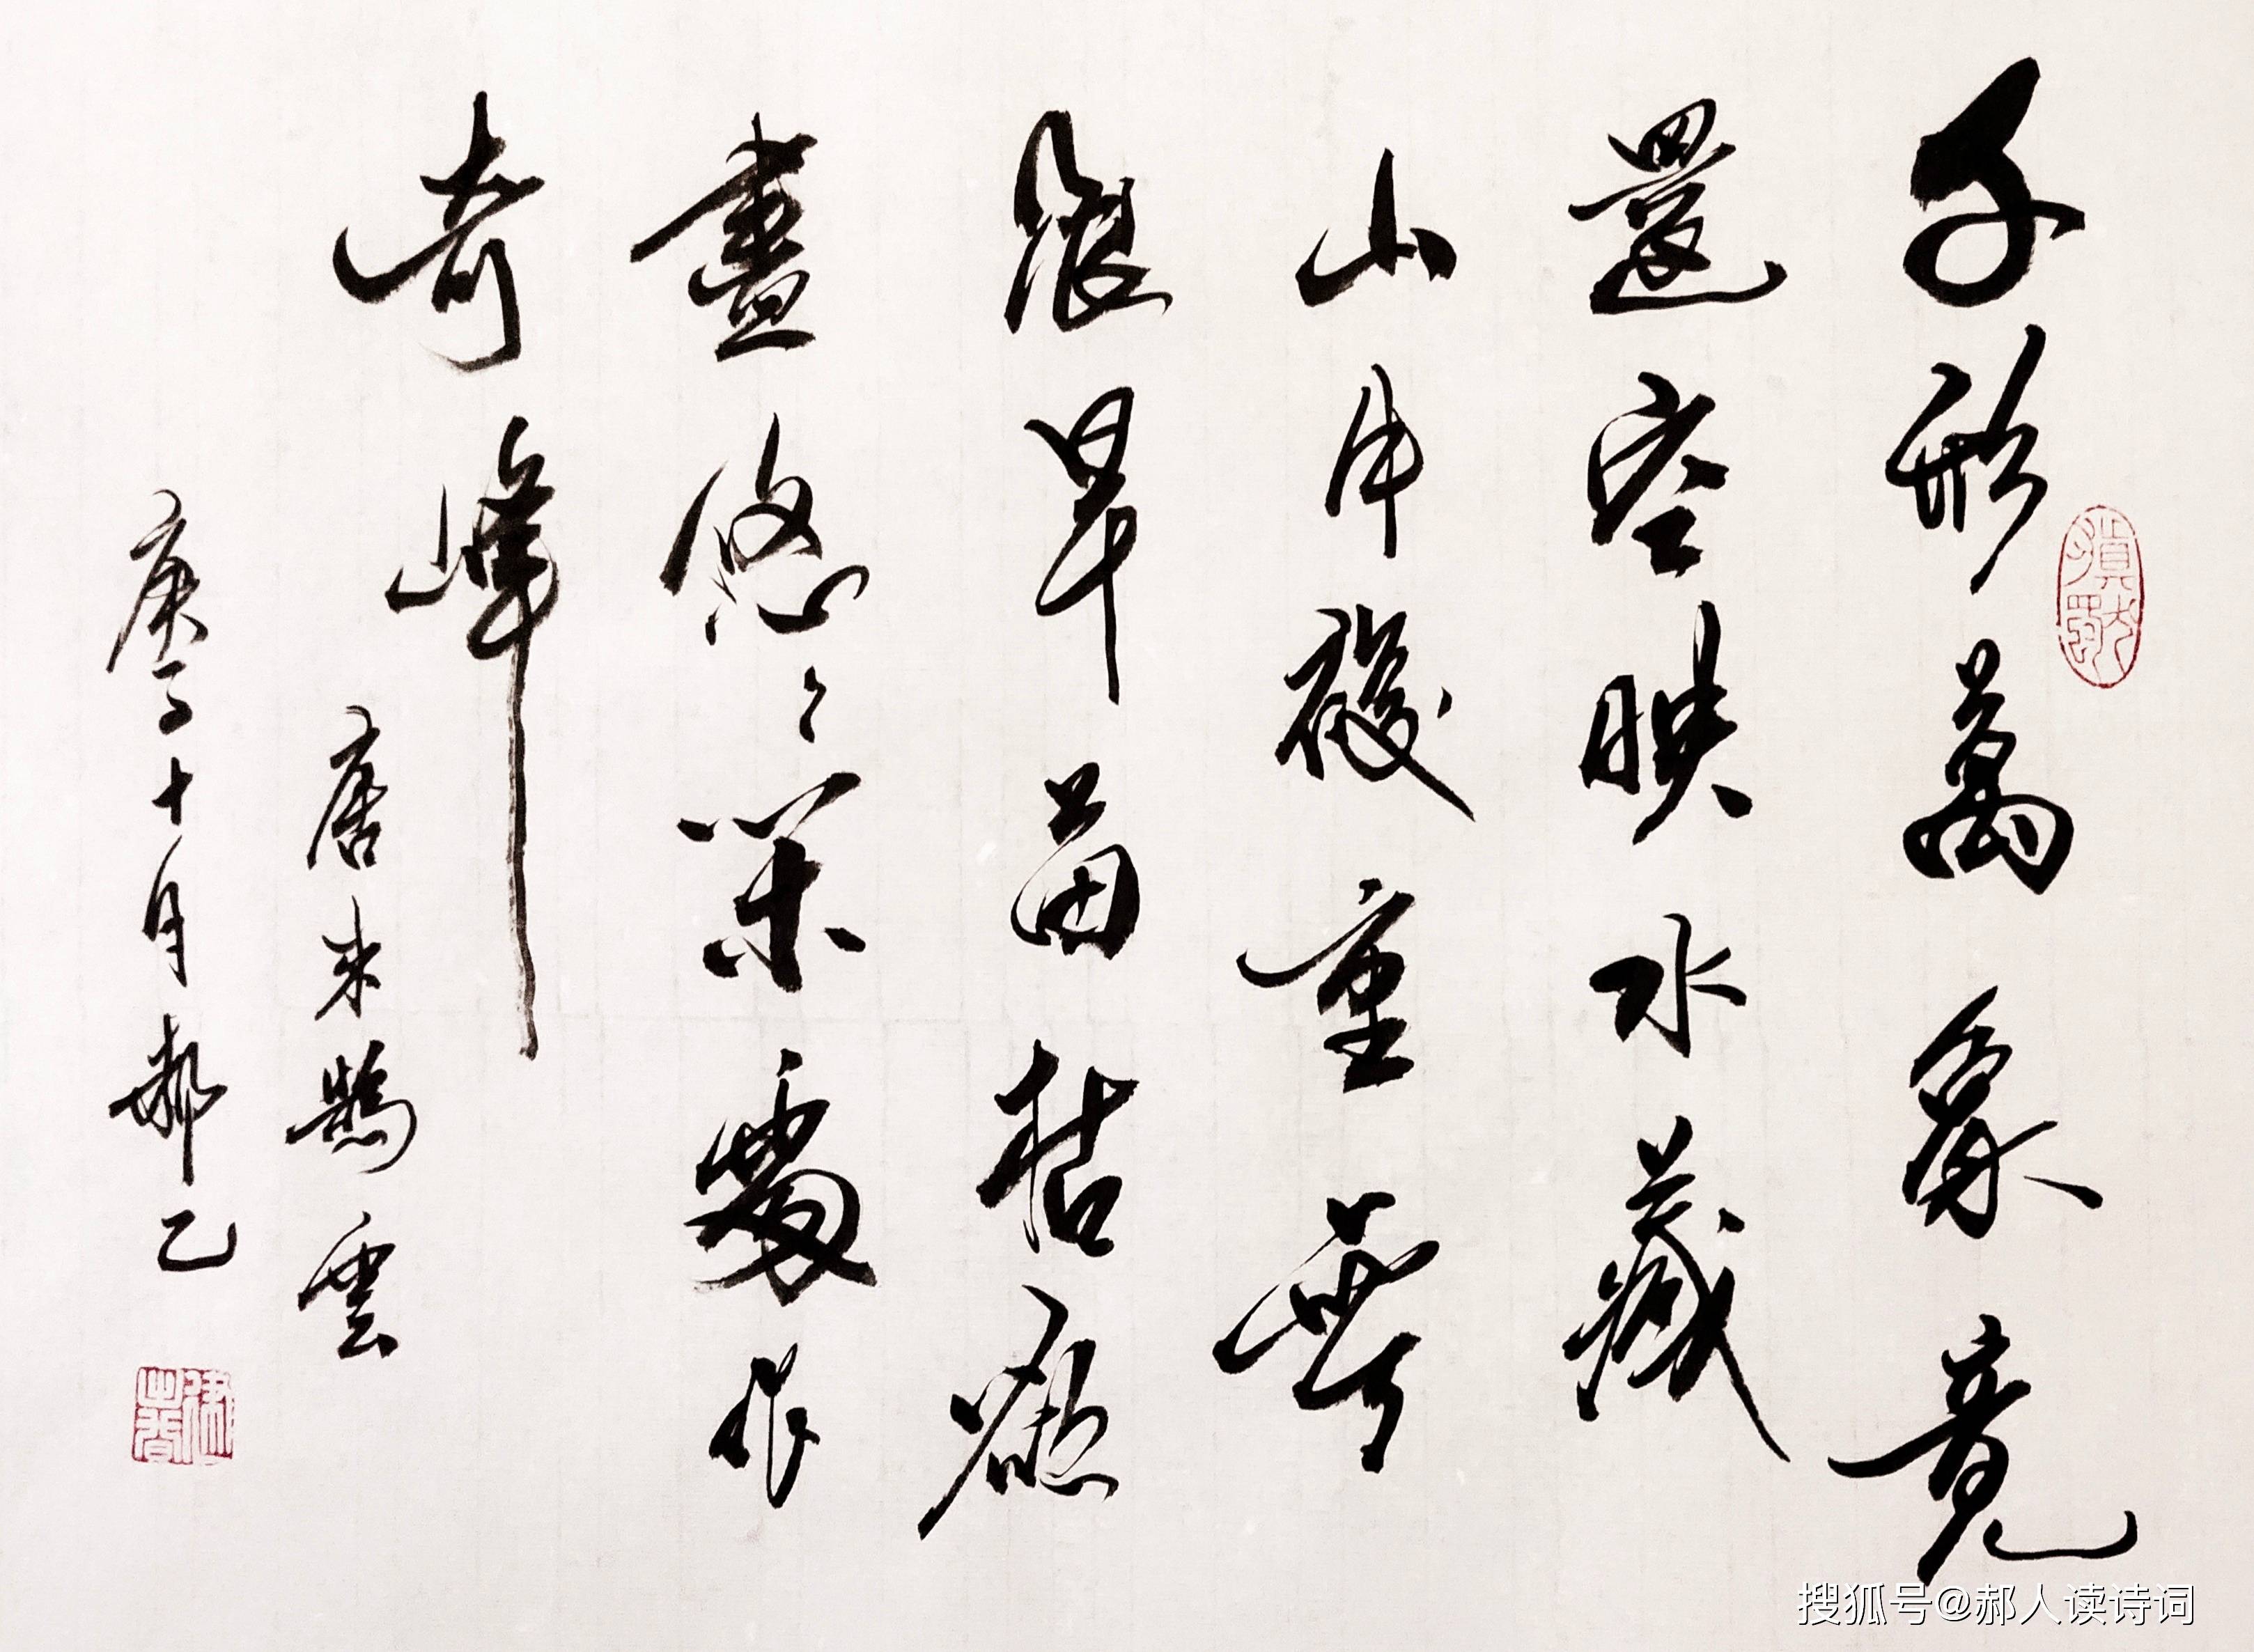 千形萬象竟
還空映水藏
山片複重無
限旱苗枯慾
盡悠々閑處作
奇峰
唐来鵠雲
庚子十月郝乙
搜狐号@郝人读诗词